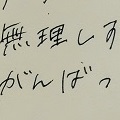 無理しす
がんばっ